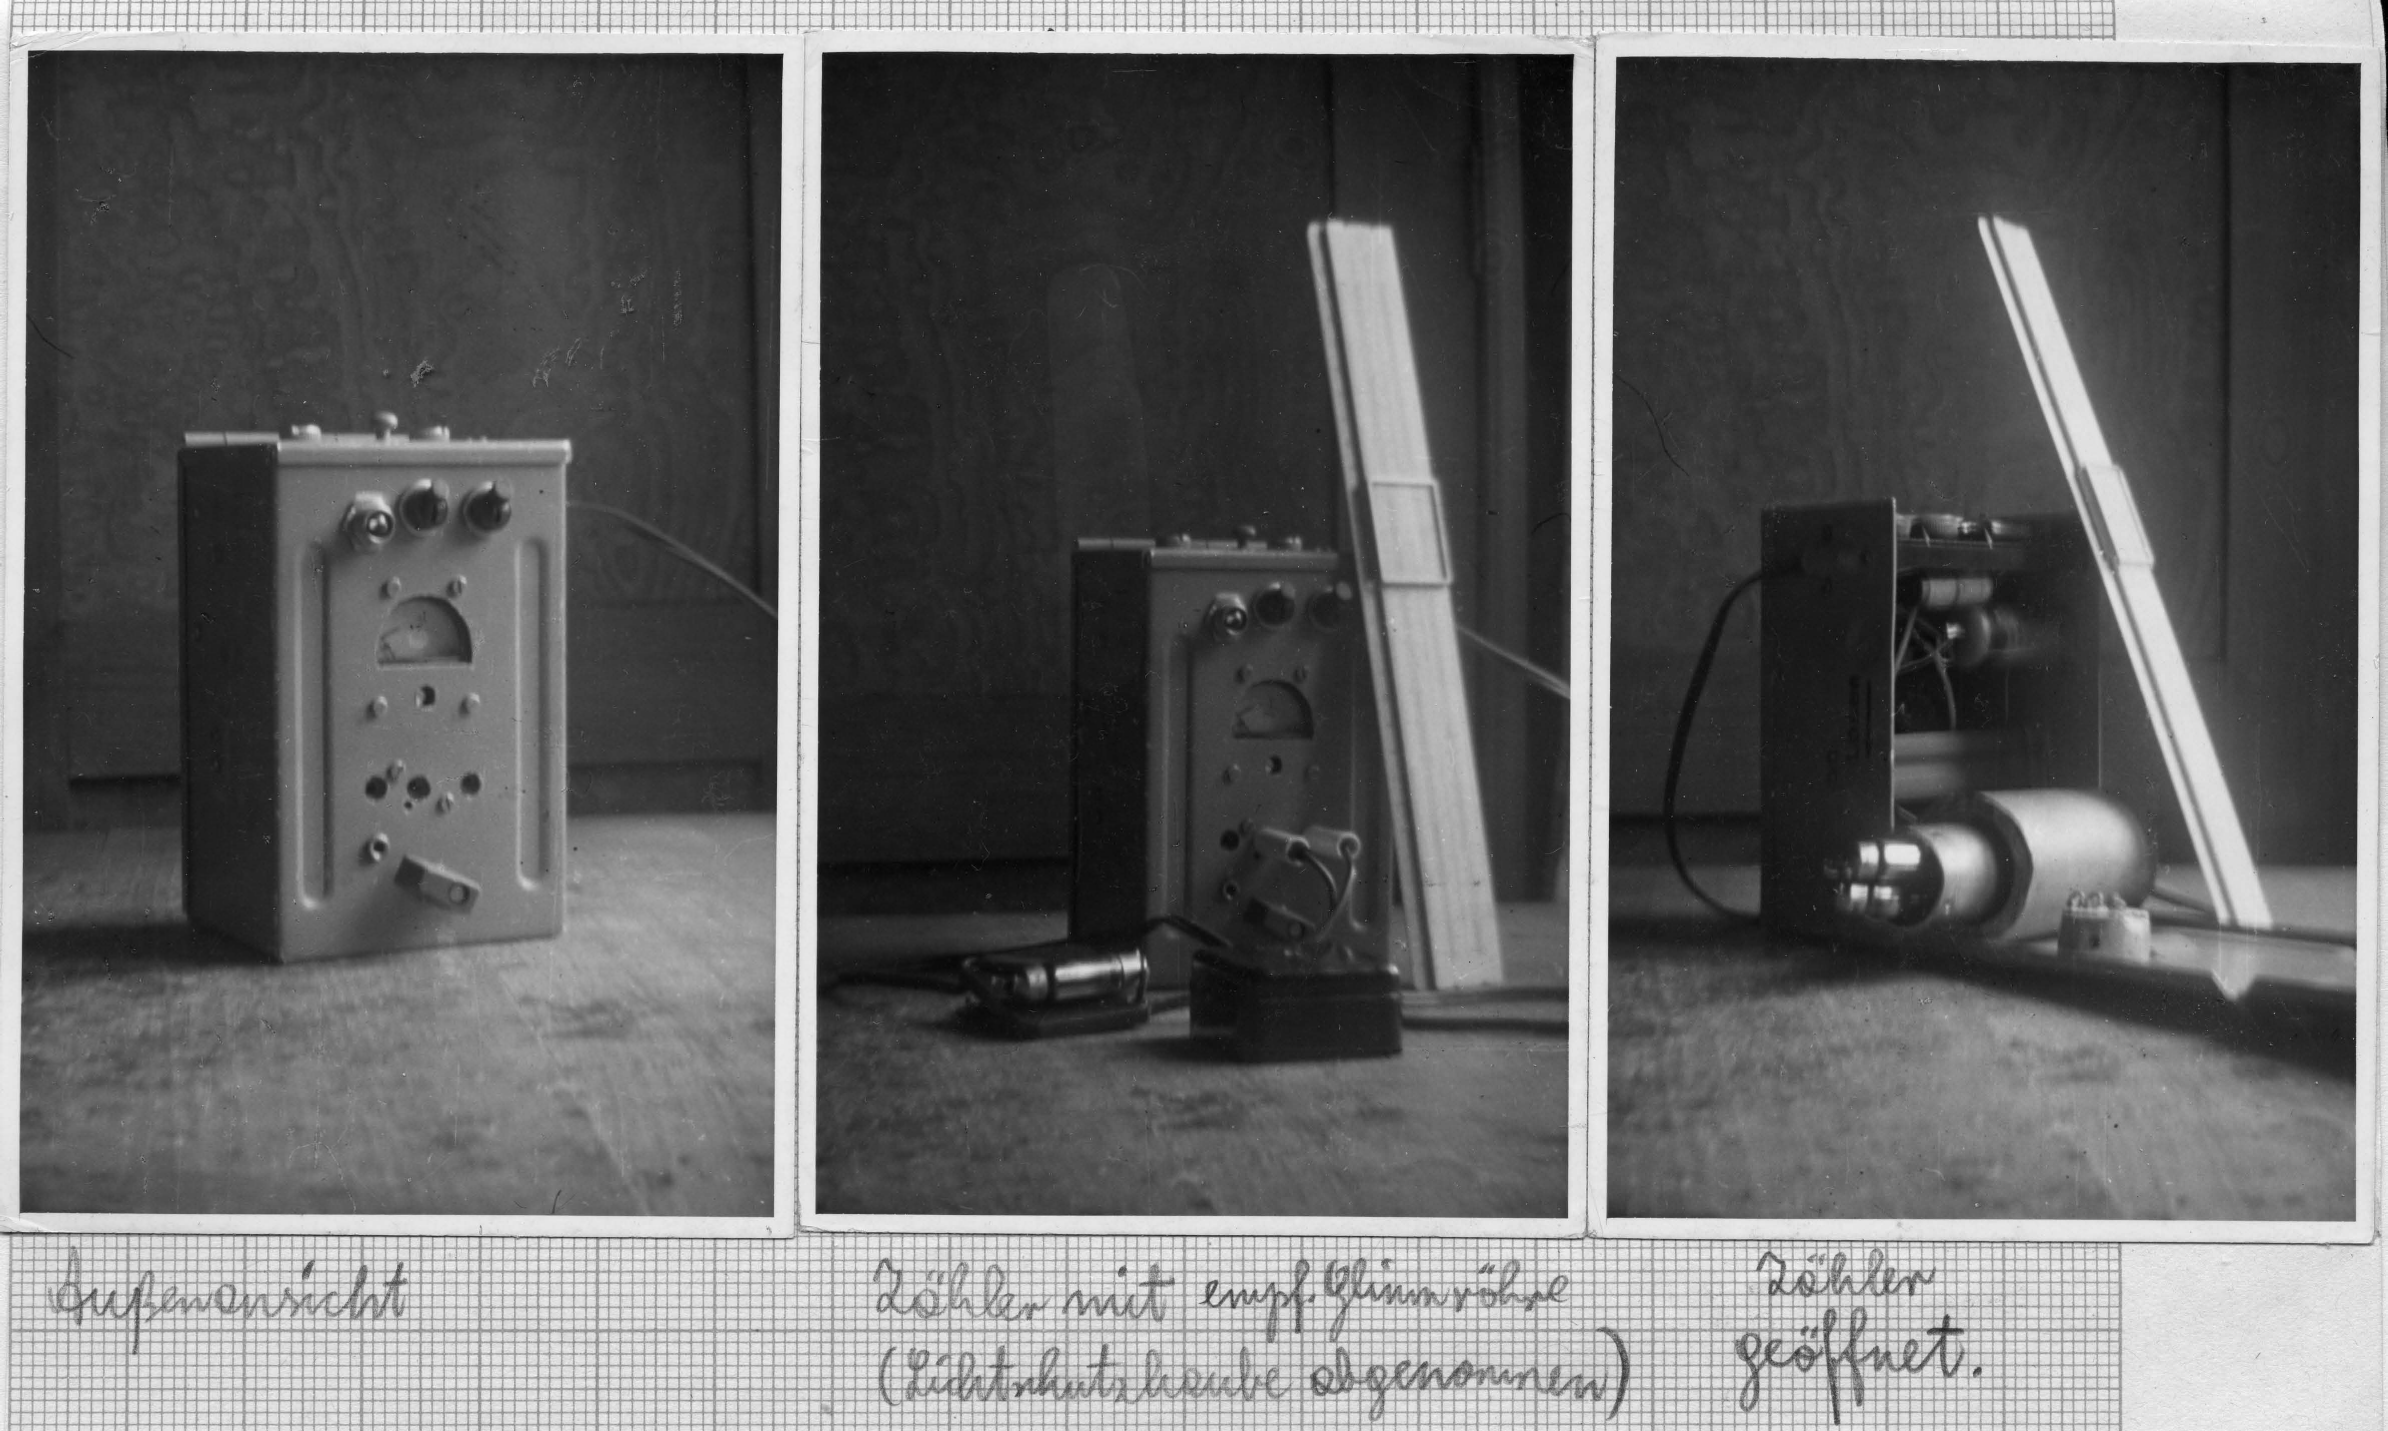 Außenansicht
Zähler mit empf. Glimmröhre
(Lichtschutzhaube abgenommen)
Zähler
geöffnet.